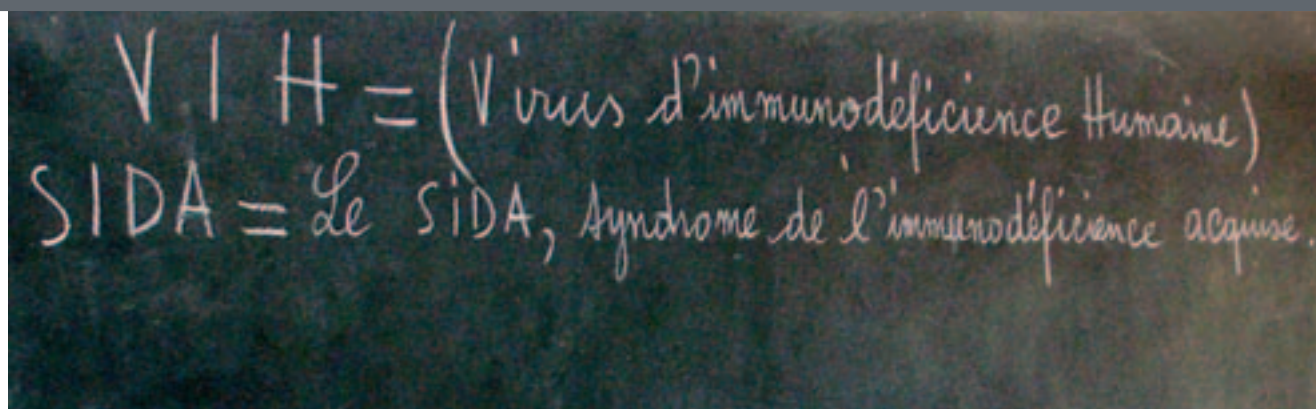 V I H = (Virus d'immunodéficience Humaine)
SIDA = Le SIDA, syndrome de l'immunodéficience acquise